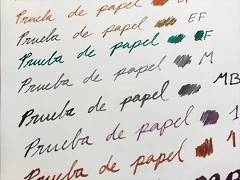 Prueba de papel EF
Prueba de papel EF
Prueba de papel F
Prueba de papel M
Prueba de papel MB
Prueba de papel 1
Prueba de papel 1